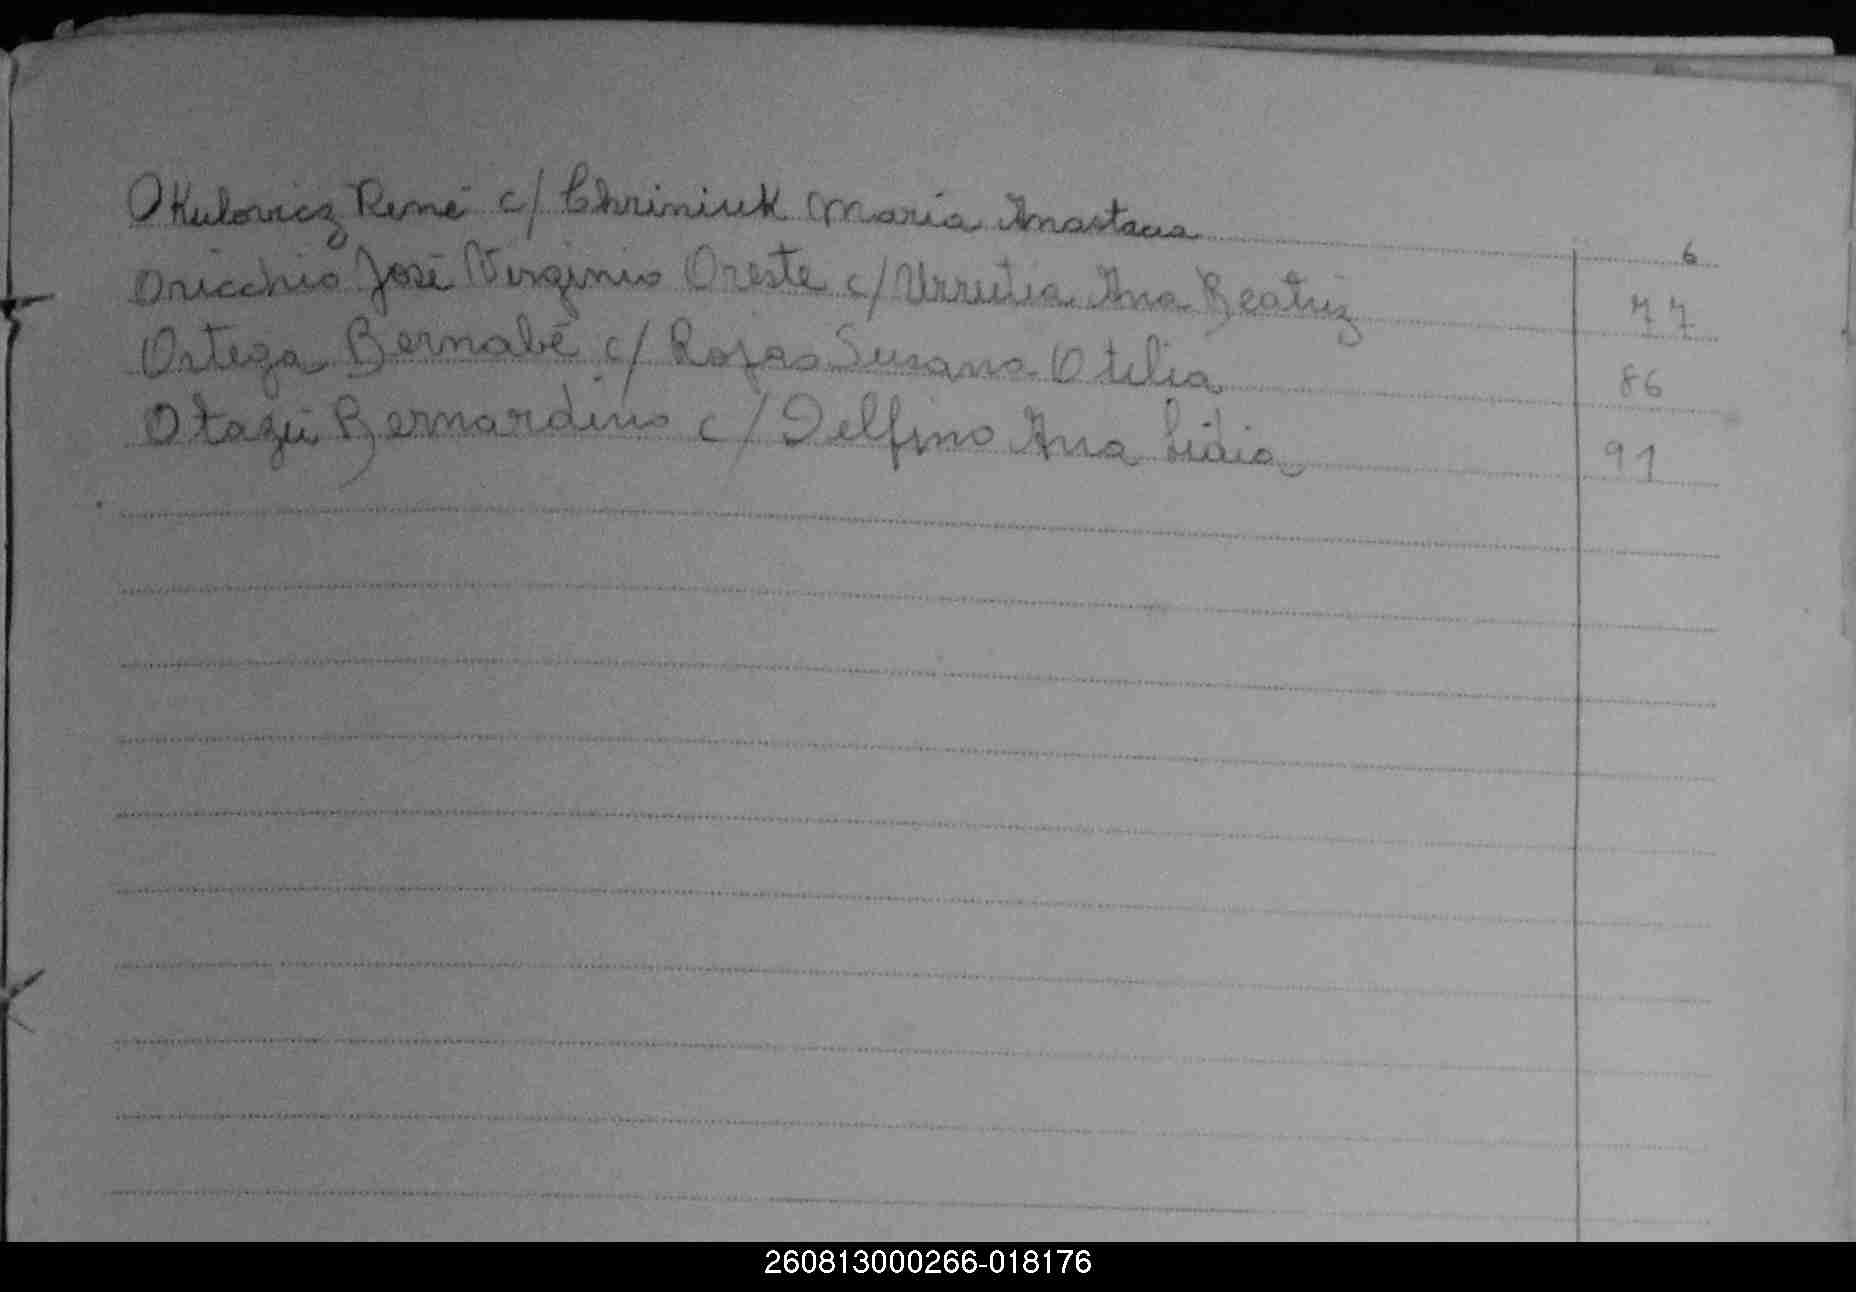 Okulovicz René c/ Chriniuk Maria Anastacia 6
Oricchio José Virginio Oreste c/ Urrutia Ana Beatriz 77
Ortega Bernabé c/ Rojas Susana Otilia 86
Otazú Bernardino c/ Delfino Ana Lidia 91
260813000266-018176